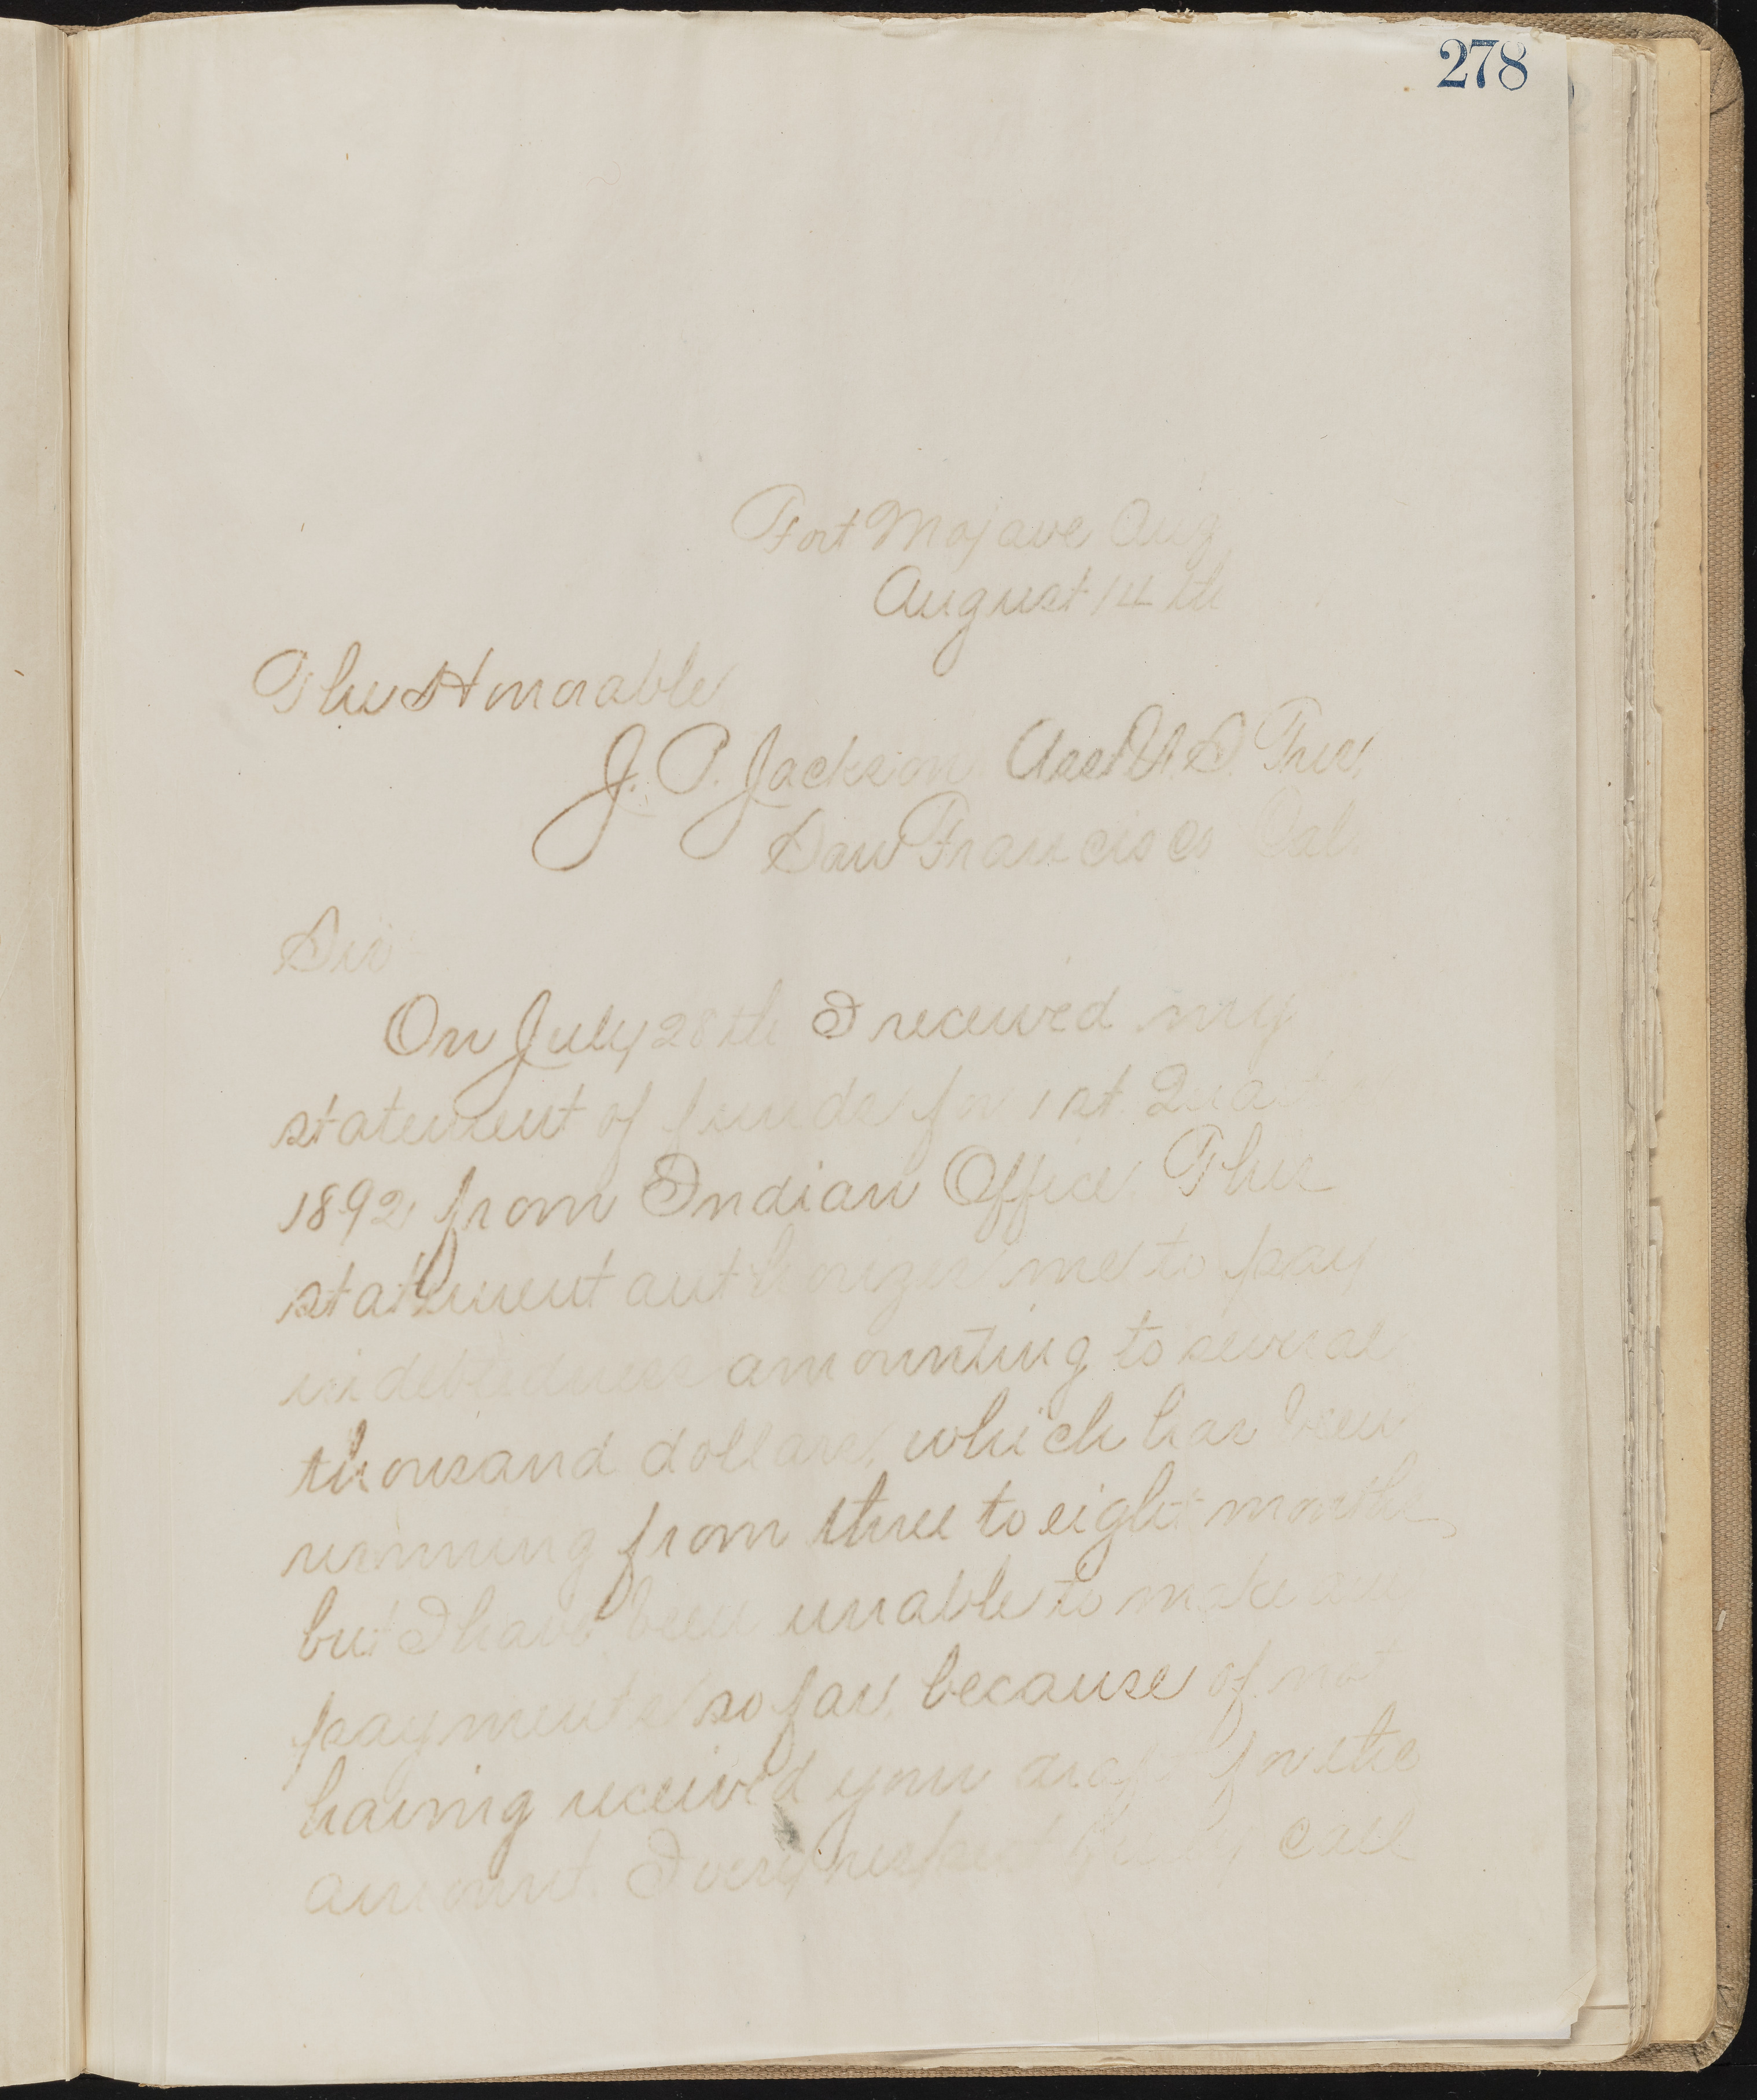 278
Fort Mojave
August 14th
The Honorable
J. P. Jackson Asst U.S. Tres.
San Francisco Cal.
Sir
On July 28th I received my
statement of funds for 1st Quarter
1892 from Indian Office. This
statement authorizes me to pay
indebtedness amounting to several
thousand dollars, which has been
running from three to eight months,
but I have been unable to make any
payments so far, because of not
having received your draft for the
amount. I very respectfully call